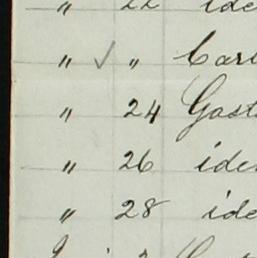 " 22 ide
" ✓ " Carl
" 24 Gast
" 26 iden
" 28 ide